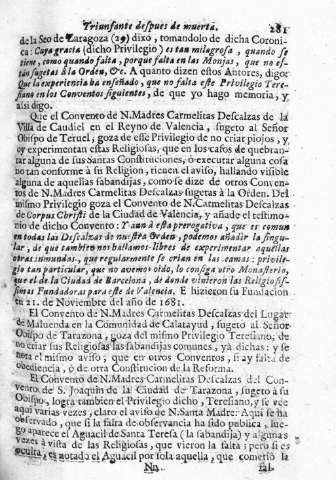 Triunfante despues de muerta. 281
de la Seo de Zaragoza (29) dixo, tomandolo de dicha Coroni-
ca: Cuya gracia (dicho Privilegio) es tan milagrosa, quando se
tiene, como quando falta, porque falta en las Monjas, que no es-
tàn sugetas à la Orden, &c. A quanto dizen estos Autores, digo:
Que la experiencia ha enseñado, que no falta este Privilegio Tere-
siano en los Conventos siguientes, de que yo hago memoria, y
assi digo.
Que el Convento de N. Madres Carmelitas Descalzas de la
Villa de Caudiel en el Reyno de Valencia, sugeto al Señor
Obispo de Teruel, goza de este Privilegio de no criar piojos, y
oy experimentan estas Religiosas, que en los casos de quebran-
tar alguna de sus Santas Constituciones, ò executar alguna cosa
no tan conforme à su Religion, tienen el aviso, hallando visible
alguna de aquellas sabandijas, como se dize de otros Conven-
tos de N. Madres Carmelitas Descalzas sugetas à la Orden. Del
mismo Privilegio goza el Convento de N. Carmelitas Descalzas
de Corpus Christi de la Ciudad de Valencia, y añade el testimo-
nio de dicho Convento: Y aun à esta prerogativa, que es comun
en todas las Descalzas de nuestra Orden, podemos añadir singu-
lar, de que tambien nos hallamos libres de experimentar aquellas
otras inmundas, que regularmente se crian en las camas: privile-
gio tan particular, que no avemos oìdo, lo consiga otro Monasterio,
que el de la Ciudad de Barcelona, de donde vinieron las Religiosis-
simas Fundadoras para este de Valencia. E hizieron su Fundacion
en 21. de Noviembre del año de 1681.
El Convento de N. Madres Carmelitas Descalzas del Lugar
de Maluenda en la Comunidad de Calatayud, sugeto al Señor
Obispo de Tarazona, goza del mismo Privilegio Teresiano, de
no criar sus Religiosas las sabandijas comunes, yà dichas: y se
nota el mismo aviso, que en otros Conventos, si ay falta de
obediencia, ò de otra Constitucion de la Reforma.
El Convento de N. Madres Carmelitas Descalzas del Con-
vento de S. Joaquin de la Ciudad de Tarazona, sugeto à su
Obispo, logra tambien el Privilegio dicho, Teresiano, y se vè
aqui varias vezes, claro el aviso de N. Santa Madre: Aqui se ha
observado, que si la falta de observancia ha sido publica, lue-
go aparece el Aguacil de Santa Teresa (la sabandija) y algunas
vezes à vista de las Religiosas, que vieron la falta; pero si es
oculta, es notado el Aguacil por sola aquella, que cometiò la
Nn. fal-